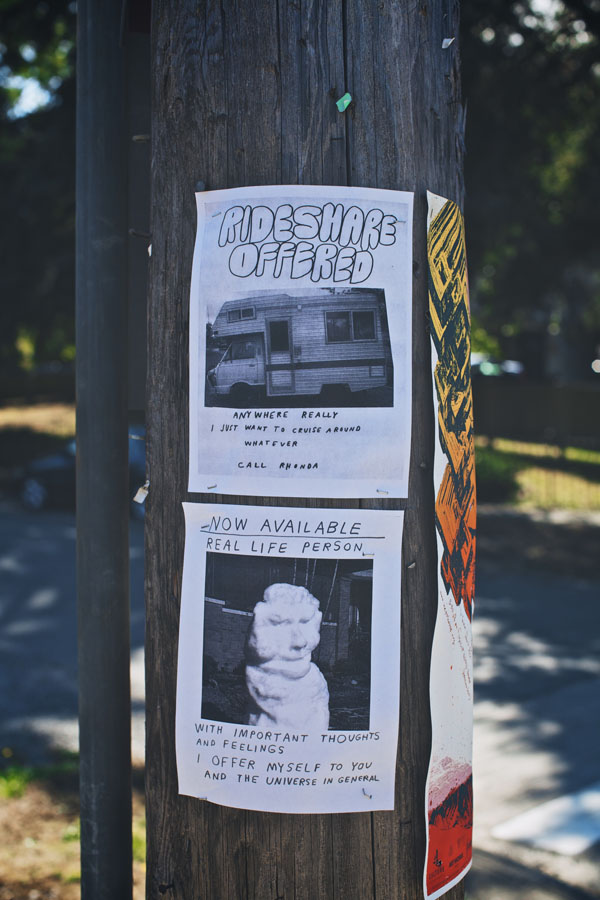 RIDESHARE
OFFERED
ANYWHERE REALLY
I JUST WANT TO CRUISE AROUND
WHATEVER
CALL RHONDA
NOW AVAILABLE
REAL LIFE PERSON
WITH IMPORTANT THOUGHTS
AND FEELINGS
I OFFER MYSELF TO YOU
AND THE UNIVERSE IN GENERAL